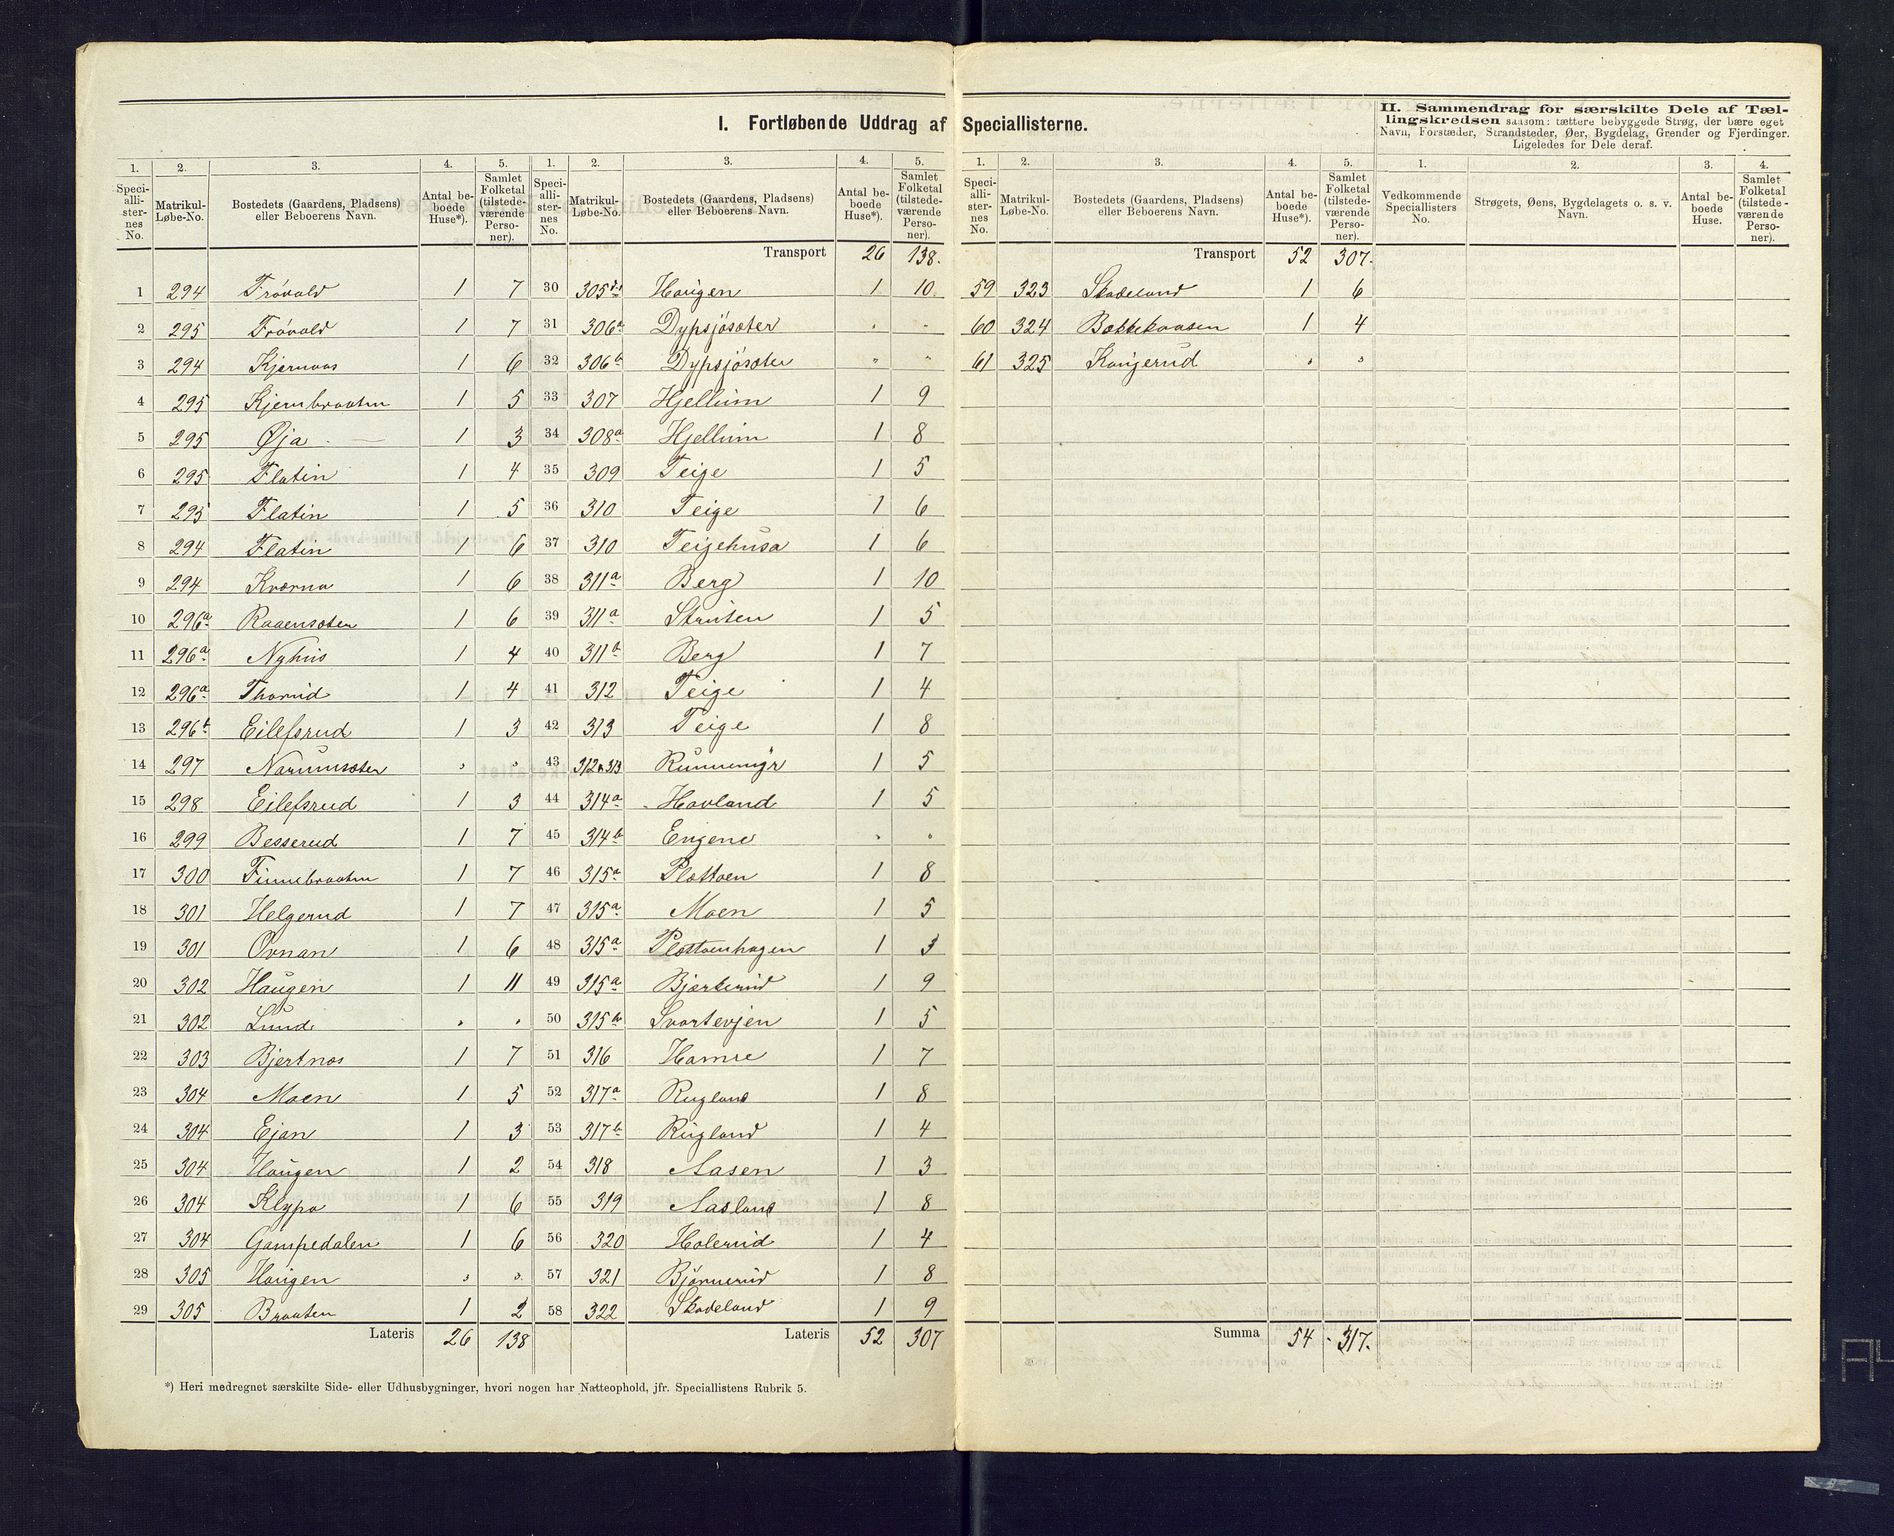 I. Fortløbende Uddrag af Speciallisterne.
II. Sammendrag for særskilte Dele af Tæl-
lingskredsen saasom: tættere bebyggede Strøg, der bære eget
Navn, Forstæder, Strandsteder, Øer, Bygdelag, Grender og Fjerdinger.
Ligeledes for Dele deraf.
1. 2. 3. 4. 5. 1. 2. 3. 4. 5. 1. 2. 3. 4. 5. 1. 2. 3. 4.
Speci-allister-nes No. Matrikul-Løbe-No. Bostedets (Gaardens, Pladsens) eller Beboerens Navn. Antal be-boede Huse*). Samlet Folketal (tilstede-værende Perso-ner).
Speci-allister-nes No. Matrikul-Løbe-No. Bostedets (Gaardens, Pladsens) eller Beboerens Navn. Antal be-boede Huse*). Samlet Folketal (tilstede-værende Perso-ner).
Speci-allister-nes No. Matrikul-Løbe-No. Bostedets (Gaardens, Pladsens) eller Beboerens Navn. Antal be-boede Huse*). Samlet Folketal (tilstede-værende Perso-ner).
Vedkommende Speciallisters No. Strøgets, Øens, Bygdelagets o. s. v. Navn. Antal be-boede Huse. Samlet Folketal (tilstede-værende Perso-ner).
1 294 Frøvold 1 7
2 295 Frøvold 1 7
3 294 Kjernaas 1 6
4 295 Kjernbraaten 1 5
5 295 Øja 1 3
6 295 Flatin 1 4
7 295 Flatin 1 5
8 294 Flatin 1 6
9 294 Kværna 1 6
10 296a Raaensæter 1 6
11 296a Nyhus 1 4
12 296a Thorud 1 4
13 296b Eilefsrud 1 3
14 297 Narumsæter " "
15 298 Eilefsrud 1 3
16 299 Besserud 1 7
17 300 Finnebraaten 1 7
18 301 Helgerud 1 7
19 301 Ovnan 1 6
20 302 Haugen 1 11
21 302 Lund " "
22 303 Bjertnæs 1 7
23 304 Moen 1 5
24 304 Ejan 1 3
25 304 Haugen 1 2
26 304 Klypa 1 6
27 304 Gampedalen 1 6
28 305 Haugen " "
29 305 Braaten 1 2
Lateris 26 138
Transport 26 138.
30 305 Haugen 1 10
31 306a Dypsjøsæter " "
32 306b Dypsjøsæter " "
33 307 Hjellum 1 9
34 308a Hjellum 1 8
35 309 Teige 1 5
36 310 Teige 1 6
37 310 Teigehusa 1 6
38 311a Berg 1 10
39 311a Struten 1 5
40 311b Berg 1 7
41 312 Teige 1 4
42 313 Teige 1 8
43 312 & 313 Runnemyr 1 5
44 314a Havland 1 5
45 314b Engene " "
46 315a Plættoen 1 8
47 315a Moen 1 5
48 315a Plættoenhagen 1 3
49 315a Bjerkerud 1 9
50 315b Svartevjen 1 5
51 316 Hamre 1 7
52 317a Rugland 1 8
53 317b Rugland 1 4
54 318 Aasen 1 3
55 319 Aasland 1 8
56 320 Holerud 1 4
57 321 Bjørnerud 1 8
58 322 Skadeland 1 9
Lateris 52 307
Transport 52 307.
59 323 Skadeland 1 6
60 324 Bækkekaasen 1 4
61 325 Kaugerud " "
Summa 54 317.
*) Heri medregnet særskilte Side- eller Udhusbygninger, hvori nogen har Natteophold, jfr. Speciallistens Rubrik 5.